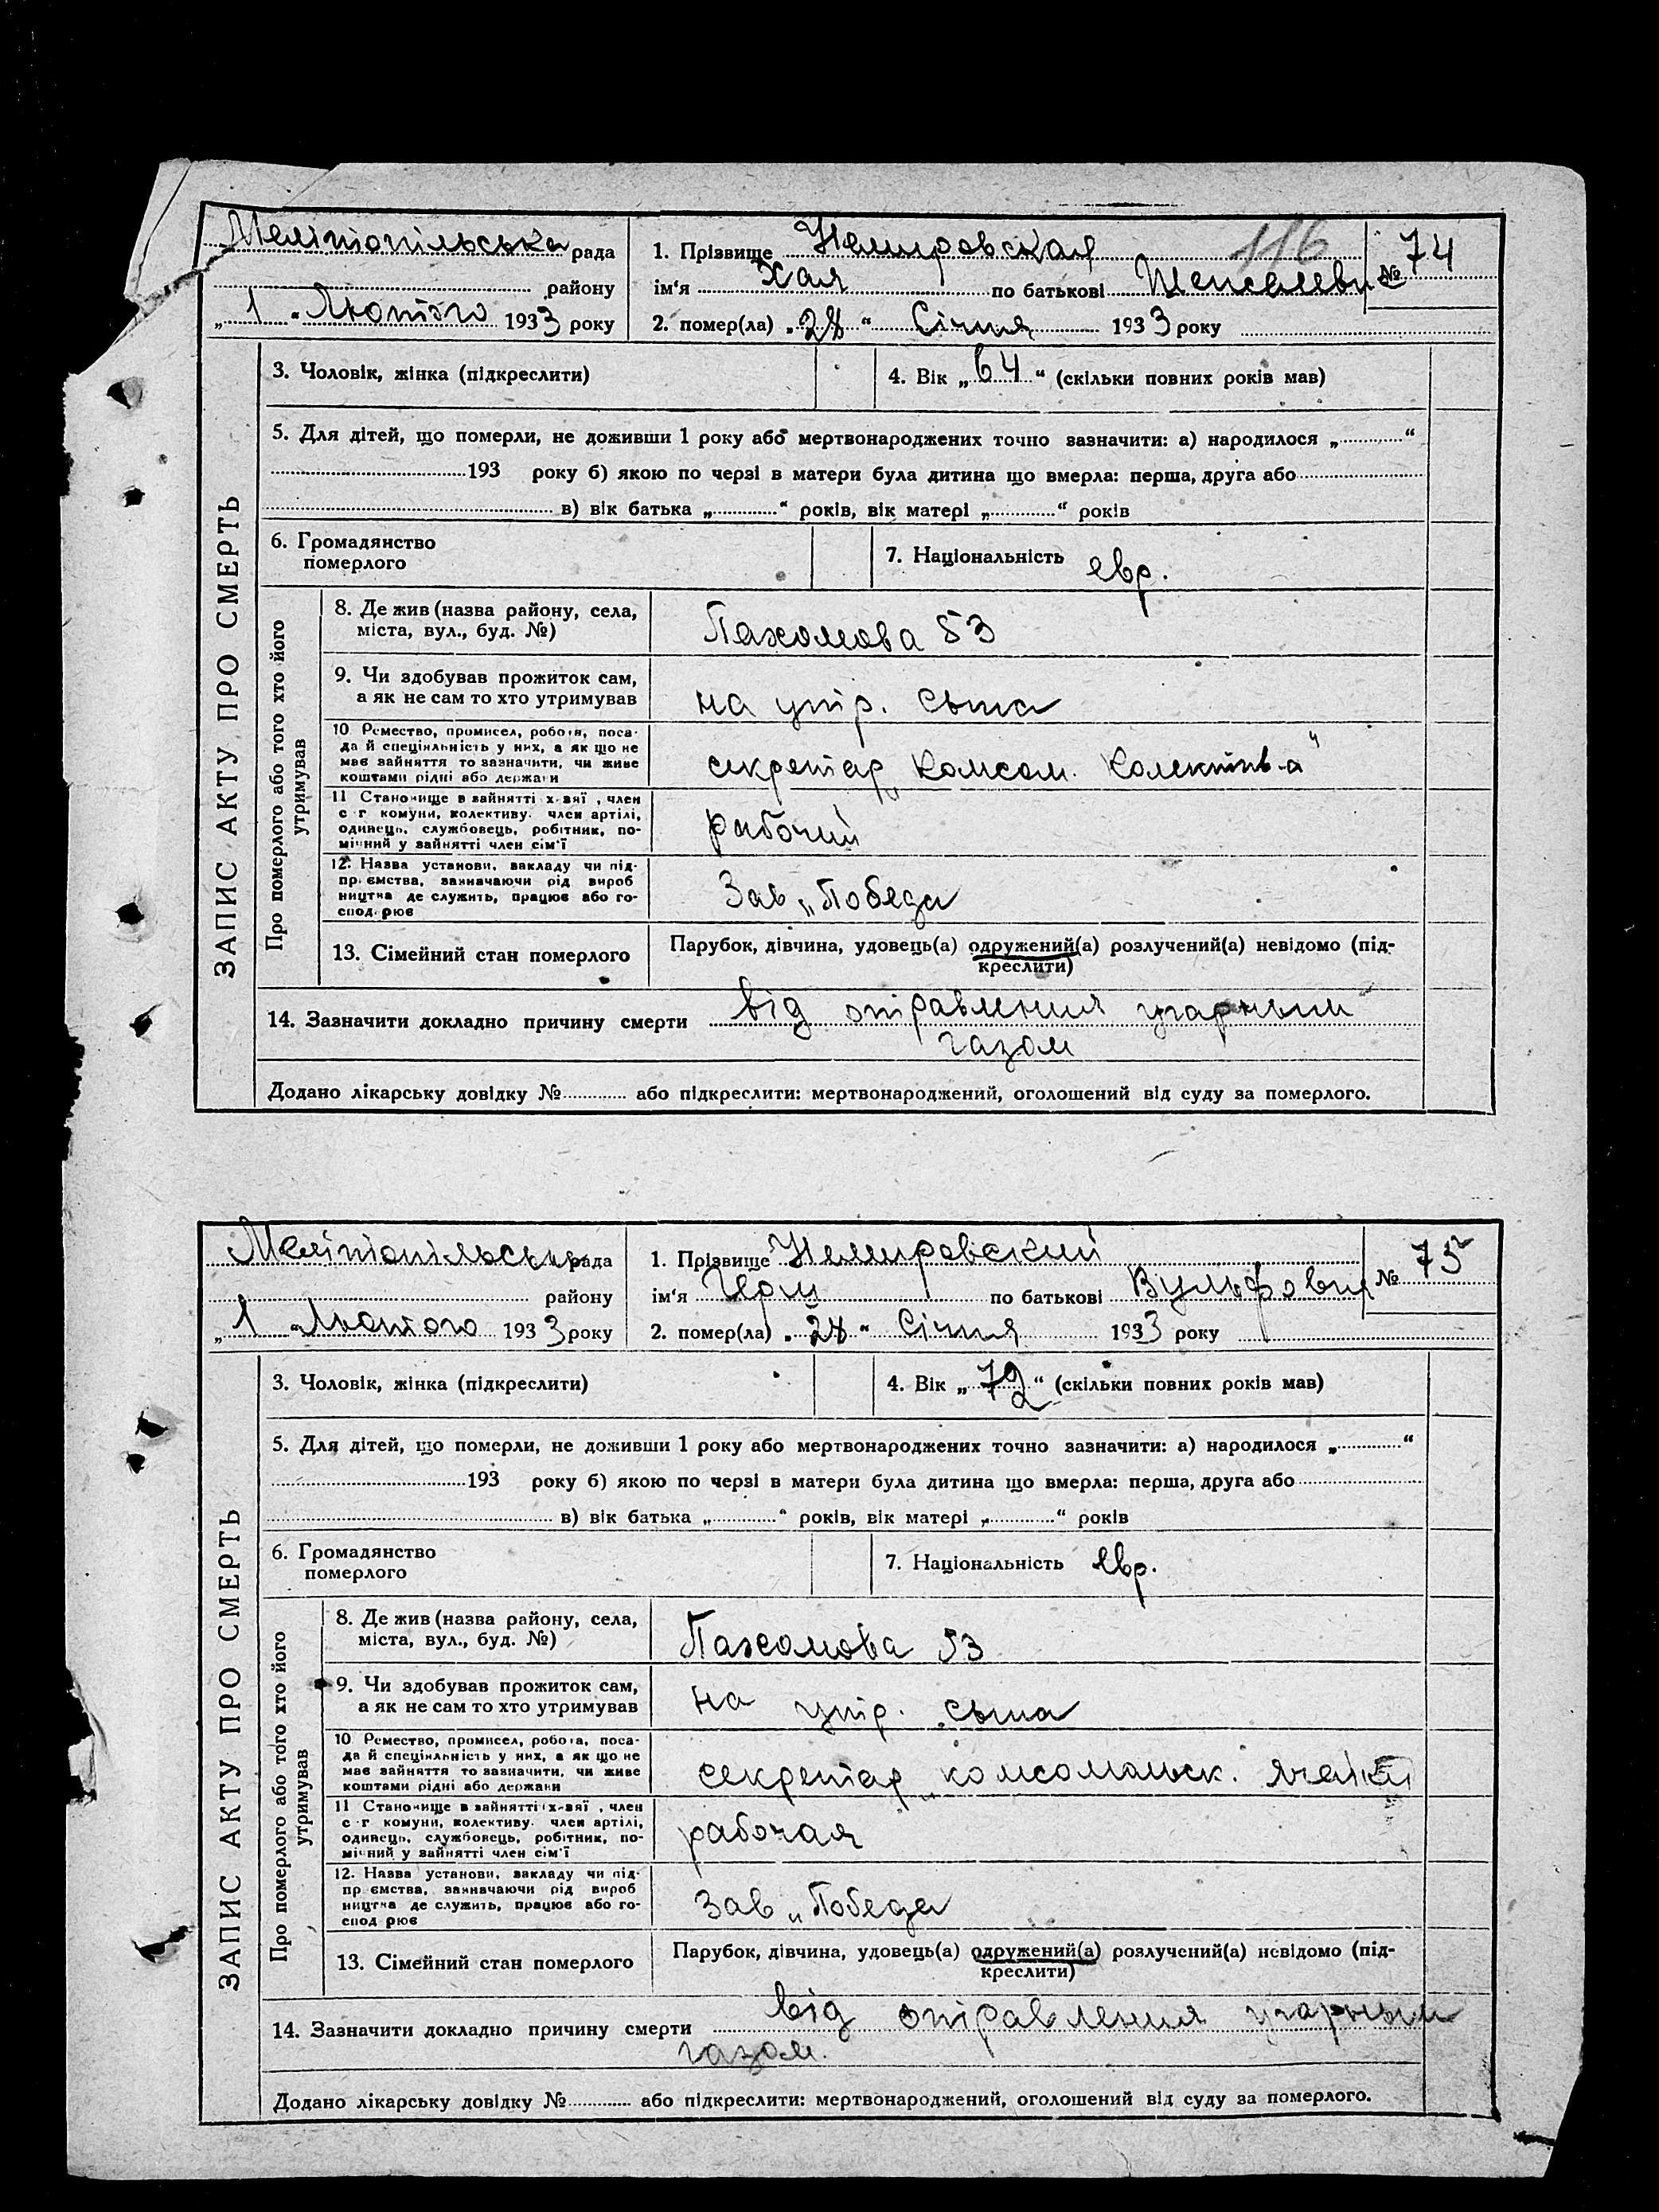 116
Мелітопільська рада
району
„ 1 „ Лютого 1933 року
1. Прізвище Немировская
ім'я Хая по батькові Шепселевн № 74
2. помер(ла) „ 28 “ Січня 1933 року
ЗАПИС АКТУ ПРО СМЕРТЬ
3. Чоловік, жінка (підкреслити)
4. Вік „ 64 “ (скільки повних років мав)
5. Для дітей, що померли, не доживши 1 року або мертвонароджених точно зазначити: а) народилося „ “
193 року б) якою по черзі в матери була дитина що вмерла: перша, друга або
в) вік батька „ “ років, вік матері „ “ років
6. Громадянство
померлого
7. Національність евр.
Про померлого або того хто його
утримував
8. Де жив (назва району, села,
міста, вул., буд. №)
Пахомова 53
9. Чи здобував прожиток сам,
а як не сам то хто утримував
на утр. сына
10 Ремество, промисел, робота, поса-
да й спеціяльність у них, а як що не
має зайняття то зазначити, чи живе
коштами рідні або держави
секретар „Комсом. Колектив-а“
11 Становище в зайнятті х-вяї, член
с г комуни, колективу. член артілі,
одинець, службовець, робітник, по-
мічний у зайнятті член сім'ї
рабочий
12. Назва установи, закладу чи під-
приємства, зазначаючи рід вироб
ництва де служить, працює або го-
сподарює
Зав „Победа
13. Сімейний стан померлого
Парубок, дівчина, удовець(а) одружений(а) розлучений(а) невідомо (під-
креслити)
14. Зазначити докладно причину смерти від отравления угарным
газом
Додано лікарську довідку № або підкреслити: мертвонароджений, оголошений від суду за померлого.
Мелітопільська рада
району
„ 1 „ Лютого 1933 року
1. Прізвище Немировский
ім'я по батькові Вульфович № 75
2. помер(ла) „ 28 “ Січня 1933 року
ЗАПИС АКТУ ПРО СМЕРТЬ
3. Чоловік, жінка (підкреслити)
4. Вік „ 72 “ (скільки повних років мав)
5. Для дітей, що померли, не доживши 1 року або мертвонароджених точно зазначити: а) народилося „ “
193 року б) якою по черзі в матери була дитина що вмерла: перша, друга або
в) вік батька „ “ років, вік матері „ “ років
6. Громадянство
померлого
7. Національність евр.
Про померлого або того хто його
утримував
8. Де жив (назва району, села,
міста, вул., буд. №)
Пахомова 53
9. Чи здобував прожиток сам,
а як не сам то хто утримував
на утр. сына
10 Ремество, промисел, робота, поса-
да й спеціяльність у них, а як що не
має зайняття то зазначити, чи живе
коштами рідні або держави
секретар „комсомольск. ячейки
11 Становище в зайнятті х-вяї, член
с г комуни, колективу. член артілі,
одинець, службовець, робітник, по-
мічний у зайнятті член сім'ї
рабочая
12. Назва установи, закладу чи під-
приємства, зазначаючи рід вироб
ництва де служить, працює або го-
сподарює
Зав „Победа
13. Сімейний стан померлого
Парубок, дівчина, удовець(а) одружений(а) розлучений(а) невідомо (під-
креслити)
14. Зазначити докладно причину смерти від отравления угарным
газом.
Додано лікарську довідку № або підкреслити: мертвонароджений, оголошений від суду за померлого.